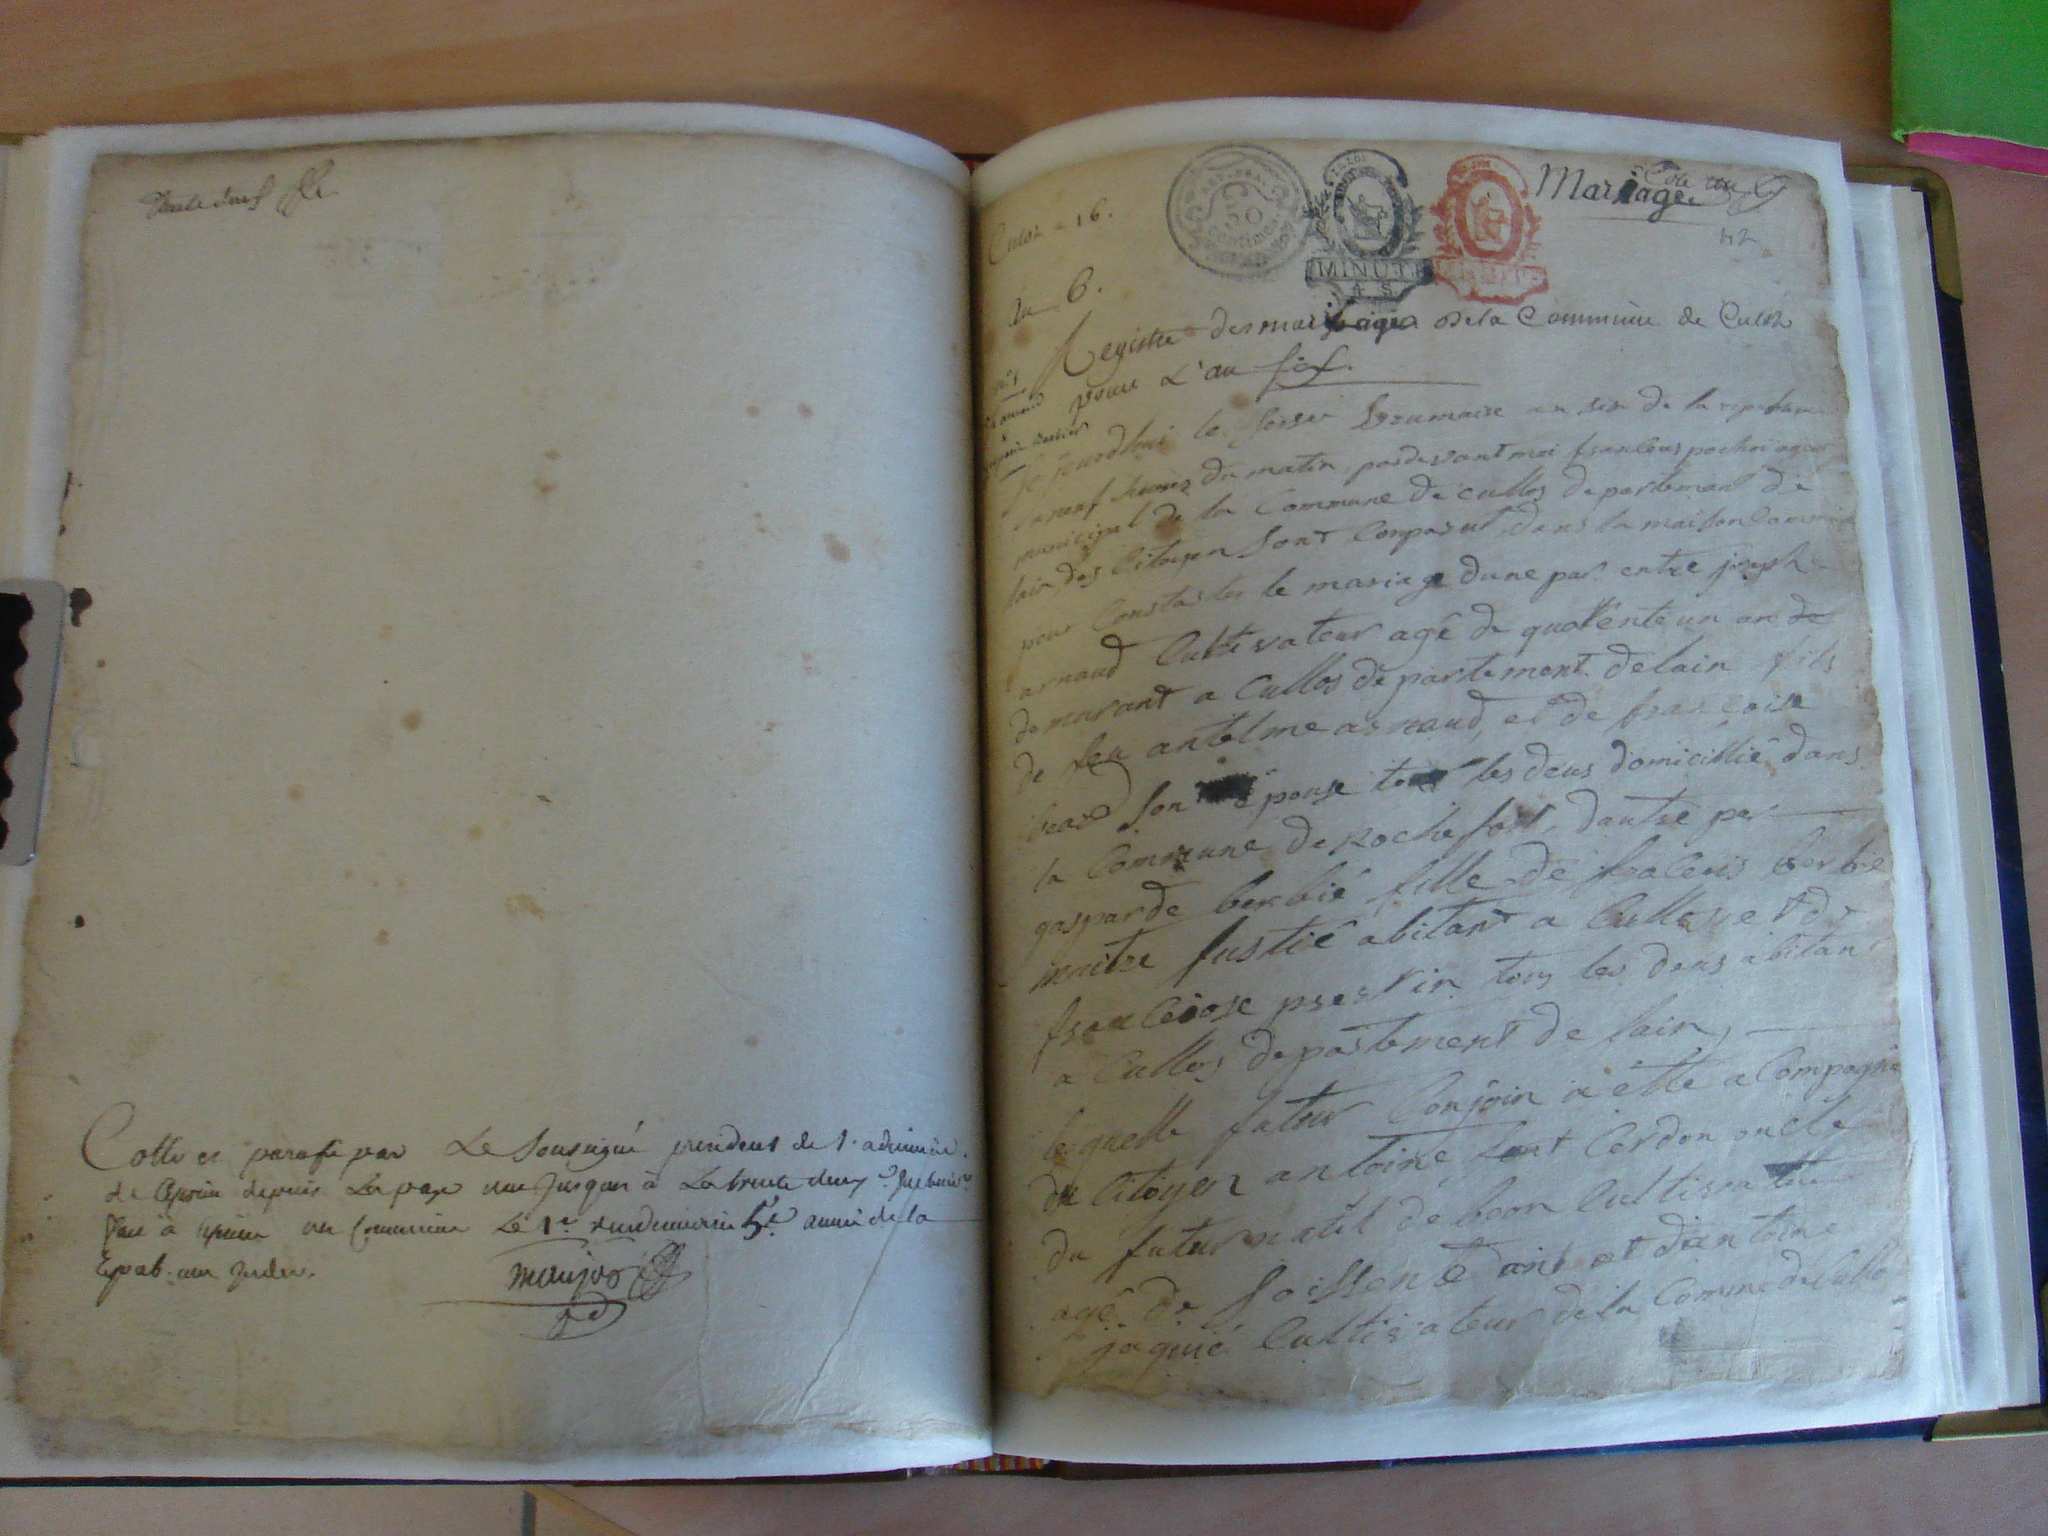 trente deux
Cotté et parafé par Le Soussigné president de l'admin
de Ceyzerieu depuis La page une jusqua à La trente deux
fait à en Commune Le 1er vendemiaire 5e année de la
Repub. une Indiv.
maujot
Culoz - 16.
REP. FRA.
50
centimes
MINUTE
4 S
MINUTE
Mariage
Cote un
an 6.
Registre des mariages de la Commune de Culoz
pour L'an six.
n° 1
arnaud
&
gasparde berbier
Jourdhui le seser brumaire an sis de la republique
a neuf heures du matin, pardevant moi franceus pochoi agent
municipal de la Commune de cullos departement de
lain, des Citoyen sont Conparut dans la maison Commune
pour Constaster le mariage dune par entre joseph
arnaud Cultivateur agé de quarente un an de
demurant a Cullos departement delain fils
de feu antelme arnaud, et de françoise
son épouse tous les deus domicillié dans
la Commune de Rochefort, dautre par
gasparde berbié fille de franceus berbie
maitre fustié abitant a Culles et de
franceiose pserrin tous les deus abitant
a Cullos departement de lain,
lequelle futur Conjoin a étté a Compagnie
du Citoyen antoine Cerdon oncle
du futur natif de beon Cultivateur
agé de soissente ans et dantoine
jaquié Cultivateur de la Comme de Cullo